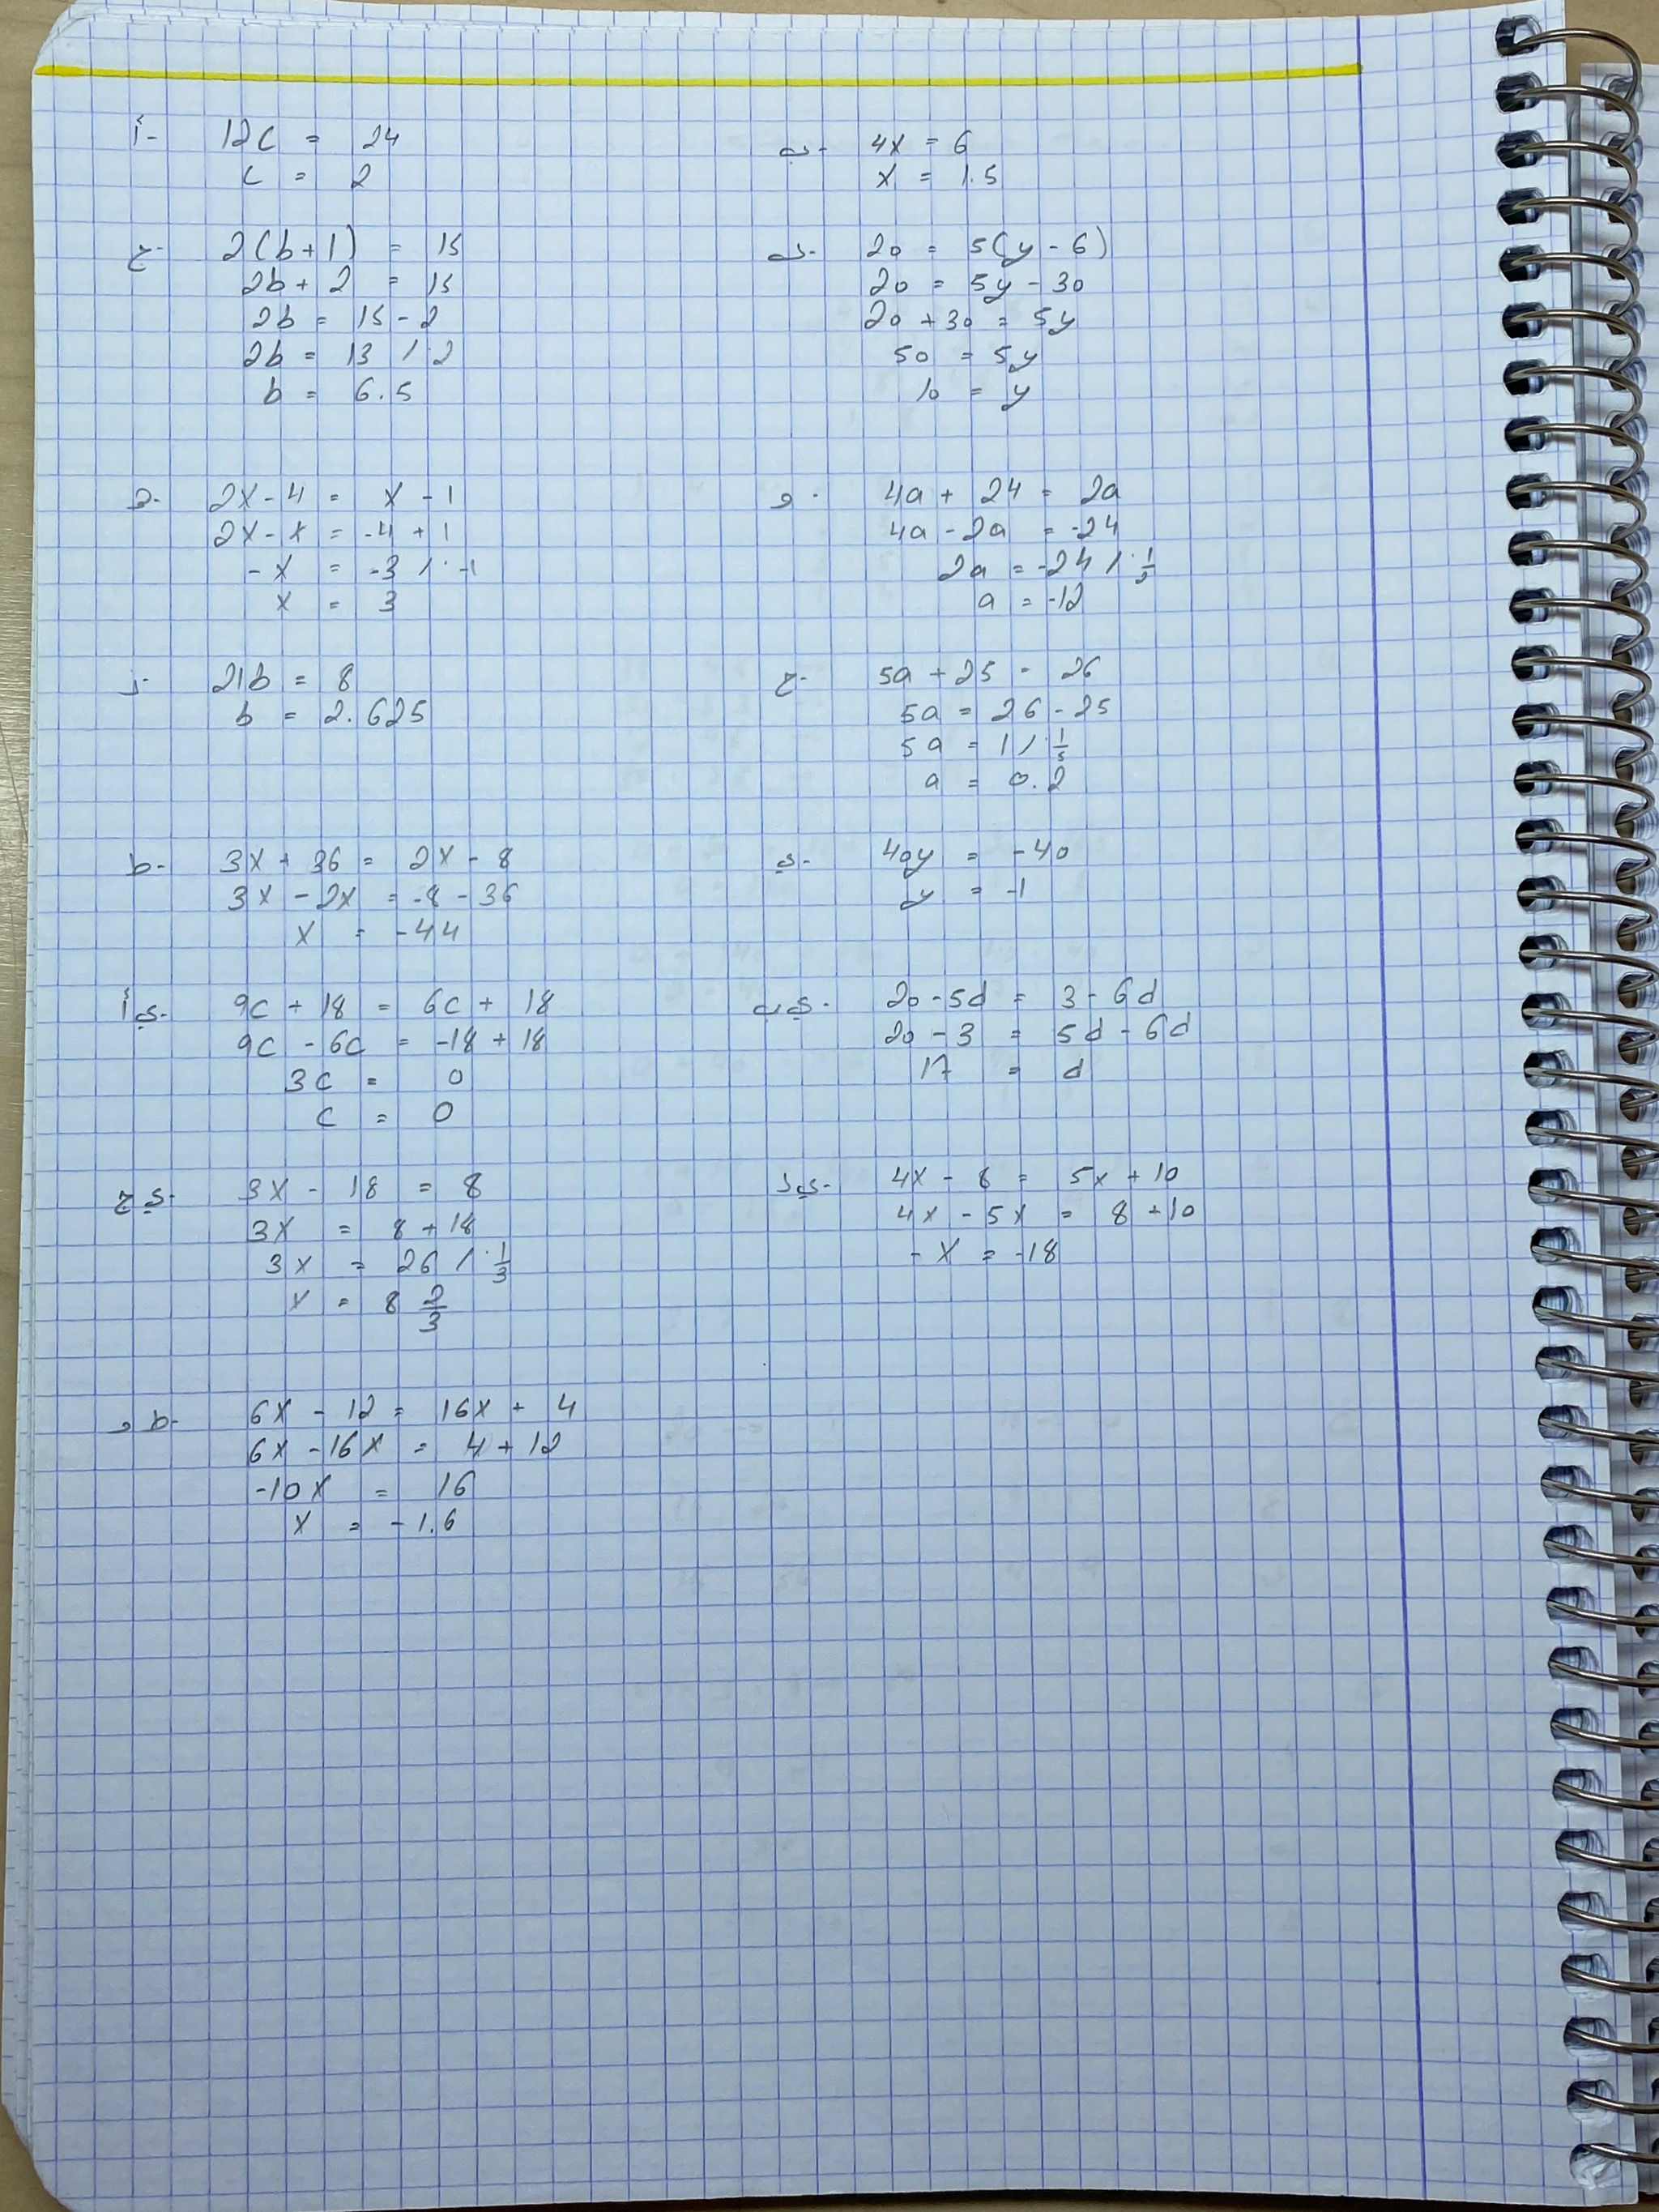 أ- 12c = 24
c = 2
ب- 4x = 6
x = 1.5
ج- 2(b+1) = 15
2b + 2 = 15
2b = 15 - 2
2b = 13 / :2
b = 6.5
د- 20 = 5(y - 6)
20 = 5y - 30
20 + 30 = 5y
50 = 5y
10 = y
ه- 2x - 4 = x - 1
2x - x = -4 + 1
-x = -3 / · -1
x = 3
و- 4a + 24 = 2a
4a - 2a = -24
2a = -24 / · 1/2
a = -12
ز- 21b = 8
b = 2.625
ح- 5a + 25 = 26
5a = 26 - 25
5a = 1 / · 1/5
a = 0.2
ط- 3x + 36 = 2x - 8
3x - 2x = -8 - 36
x = -44
ي- 40y = -40
y = -1
ي أ- 9c + 18 = 6c + 18
9c - 6c = -18 + 18
3c = 0
c = 0
ي ب- 20 - 5d = 3 - 6d
20 - 3 = 5d - 6d
17 = d
ي ج- 3x - 18 = 8
3x = 8 + 18
3x = 26 / · 1/3
x = 8 2/3
ي د- 4x - 8 = 5x + 10
4x - 5x = 8 + 10
-x = -18
ط و- 6x - 12 = 16x + 4
6x - 16x = 4 + 12
-10x = 16
x = -1.6